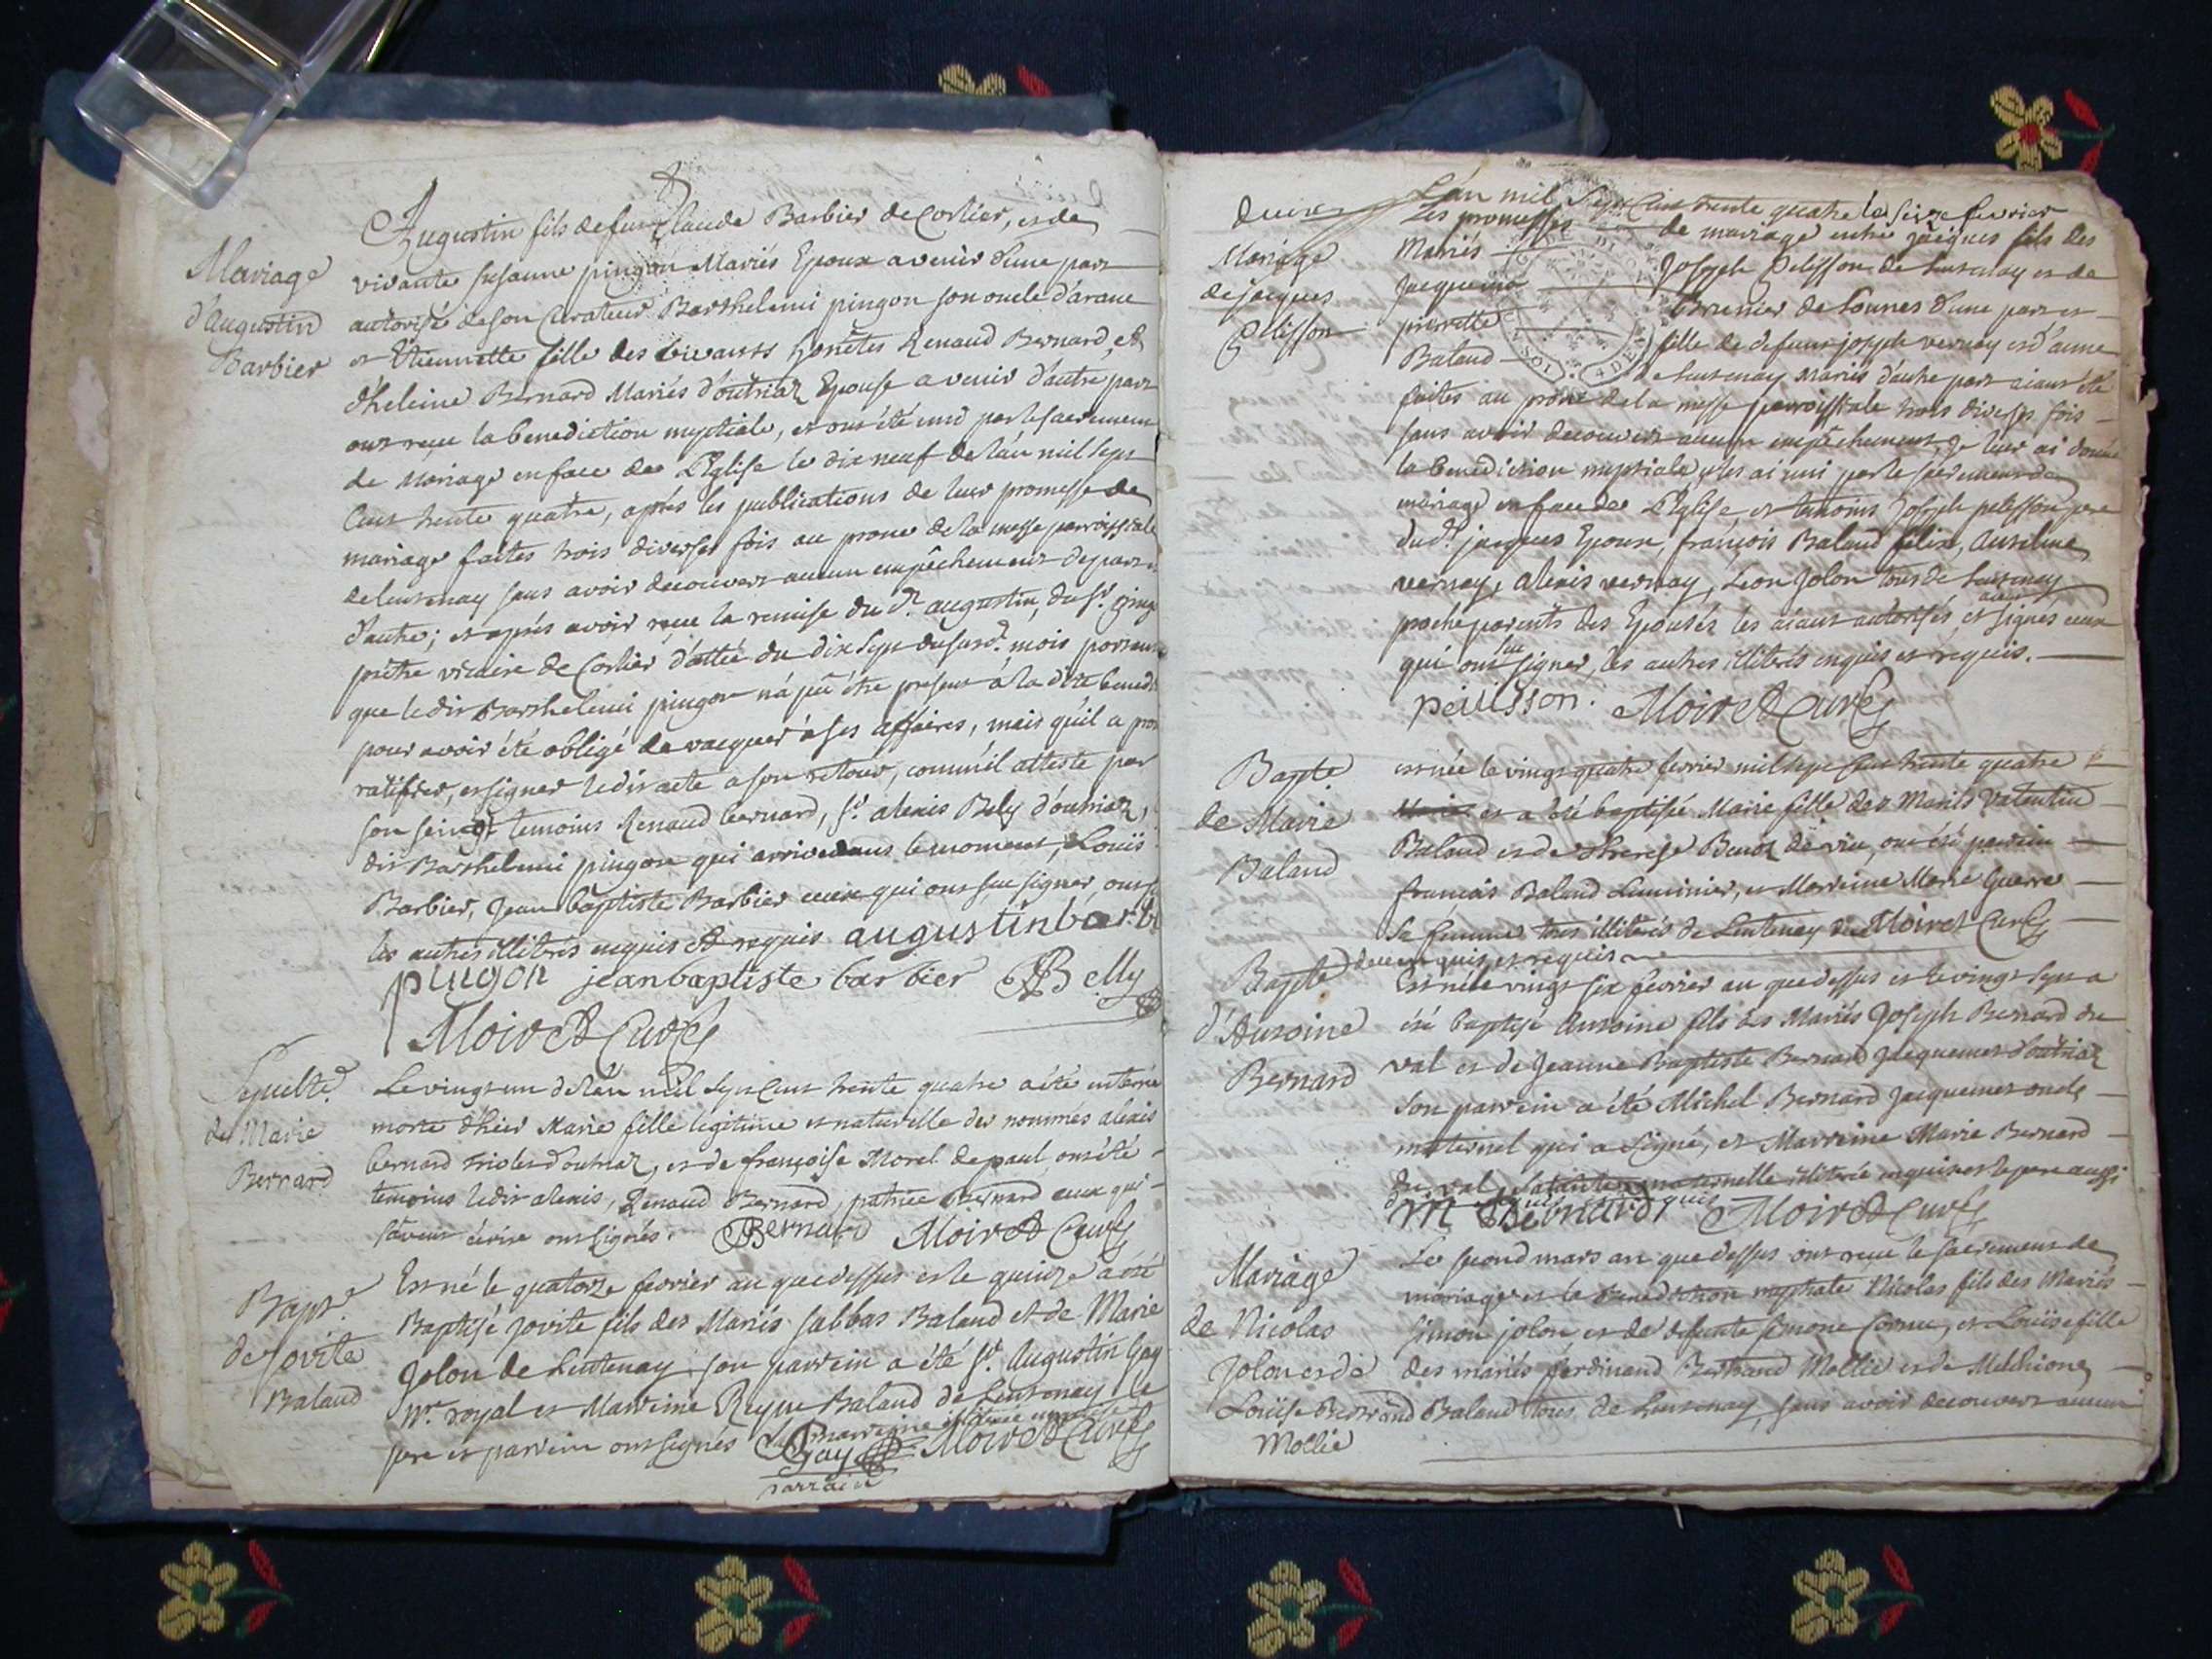 Mariage
d'Augustin
Barbier
Augustin fils de feu Claude Barbier de Corlier, et de
vivante Susanne pingon Mariés Epoux avenir d'une part
autorisé de son Curateur Barthelemi pingon son oncle d'arane
et Etiennette fille des vivants honêtes Renaud Bernard, et
d'heleine Bernard Mariés d'outriaz Epouse avenir d'autre part
ont reçu la benediction nuptiale, et ont été uni par le sacrement
de Mariage en face de L'Eglise le dix neuf de l'an mil sept
Cent trente quatre, aprés les publications de leur promesse de
mariage faites trois diverses fois au prone de la messe parroissiale
de lentenay sans avoir decouvert aucun empêchement de part et
d'autre; et aprés avoir reçu la remise du dt. augustin, du sr.
prêtre vicaire de Corlier dattée du dix sept du susd. mois portant
que ledit Barthelemi pingon n'a pû être present à la dite bened
pour avoir été obligé de vacquer à ses affaires, mais qu'il a
ratifier, et signer ledit acte a son retour, comme il atteste par
son seing temoins Renaud bernard, sr. alexis Bely d'outriaz,
dit Barthelemi pingon qui arrive dans le moment, Louis
Barbier, Jean baptiste Barbier ceux qui ont sçu signer, ont
les autres illitrés enquis et requis augustin bar
pingon jean baptiste barbier Belly
Moiret Curé
Sepultre.
de Marie
Bernard
Le vingt un de l'an mil sept Cent trente quatre a été enterrée
morte d'hier Marie fille legitime et naturelle des nommés alexis
bernard d'outriaz, et de françoise Morel de paul ont été
temoins ledit alexis, Renaud Bernard, patrice Bernard ceux qui
sçavent écrire ont signés. Bernard Moiret Curé
Bapt.
de Jovite
Balaud
Est né le quatorze fevrier an que dessus et le quinze a été
Baptisé jovite fils des Mariés sabbas Balaud et de Marie
Jolon de Lentenay son parrein a été sr. Augustin Gay
nr. royal et Marreine Reyne Balaud de Lentenay le
pere et parrein ont signés la marreine illitrée enquise
Gay Moiret Curé
parrain
L'an mil Sept Cent trente quatre le seize fevrier
Mariage
de jacques
Pelisson
Les promesses de mariage entre jacques fils des
Mariés Joseph Pelisson de Lentenay et de
Jacquema Brunier de d'une part et
pierrette fille de defunt joseph vernay et d'anne
Balaud de Lentenay Mariés d'autre part aiant été
faites au prone de la messe parroissiale trois diverses fois
sans avoir decouvert aucun empêchement, je leur ai donné
la benediction nuptiale et les ai uni par le sacrement de
mariage en face de L'Eglise et temoins Joseph pelisson pere
du dt. jacques Epoux, françois Balaud felix, Anselme
vernay, alexis vernay, Leon Jolon tous de Lentenay
proche parents des Epousés les aiant autorisés, et signés ceux
qui ont sçu signer, les autres illitrés enquis et requis.
pelisson. Moiret Curé
Bapte.
de Marie
Balaud
est née le vingt quatre fevrier mil sept cent trente quatre
et a été baptisée Marie fille des Mariés Valentin
Balaud et de therese Benoz ont été parrein
francois Balaud Luminier, et Marreine Marie Guerre
sa femme tous illitrés de Lentenay Moiret Curé
enquis et requis
Bapte
d'Antoine
Bernard
Est né le vingt six fevrier an que dessus et le vingt sept a
été baptisé Antoine fils des Mariés Joseph Bernard du
val et de Jeanne Baptiste Bernard Jacquemet d'outriaz
son parrein a été Michel Bernard Jacquemet oncle
maternel qui a signé, et Marreine Marie Bernard
du val, sa tante maternelle illitrée enquise et le pere aussi
M Bernard Moiret Curé
Mariage
de Nicolas
Jolon et de
Louise Bertrand
Mollie
Le second mars an que dessus ont reçu le sacrement de
mariage et la benediction nuptiale Nicolas fils des Mariés
simon jolon et de defunte simone Cornu, et Louise fille
des mariés ferdinand Bertrand Mollie et de Melchione
Balaud tous de Lentenay, sans avoir decouvert aucun